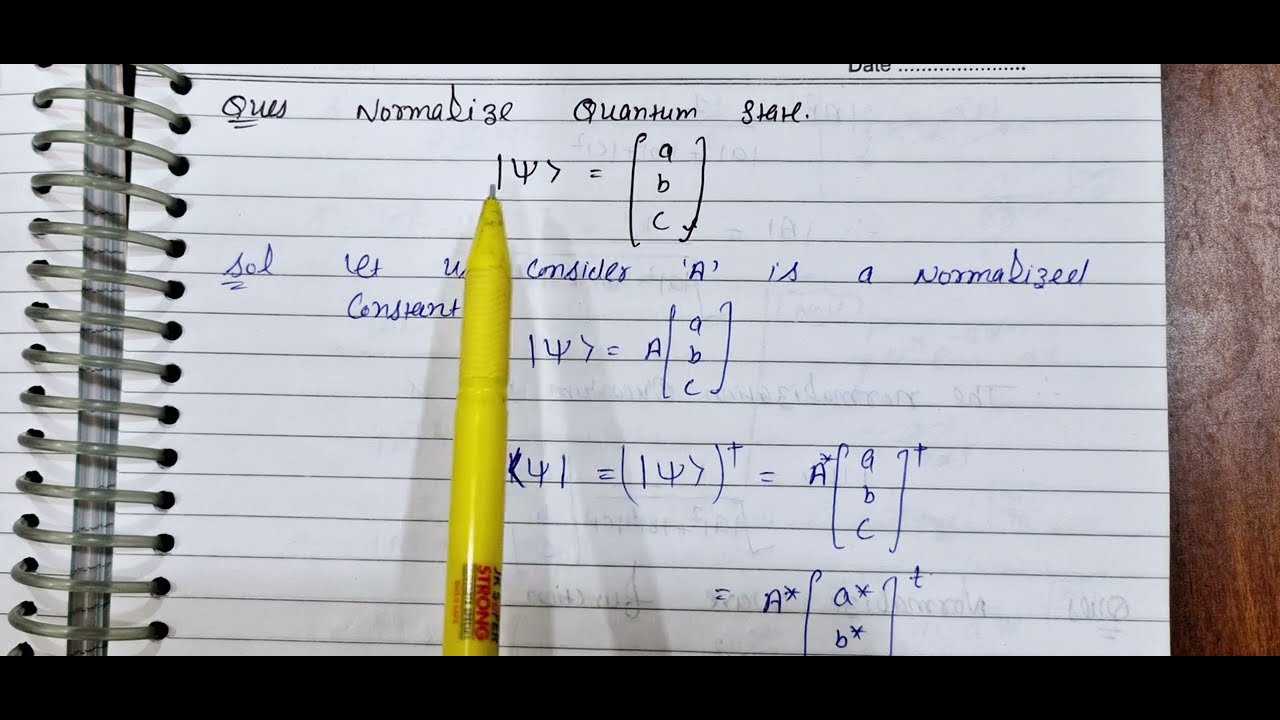 Date ........................
Ques Normalize Quantum State.
|Ψ> = [a
b
c]
Sol Let us consider 'A' is a Normalized
Constant
|Ψ> = A [a
b
c]
<Ψ| = (|Ψ>)† = A* [a
b
c]†
= A* [a*
b*]t
JK SUPER
STRONG